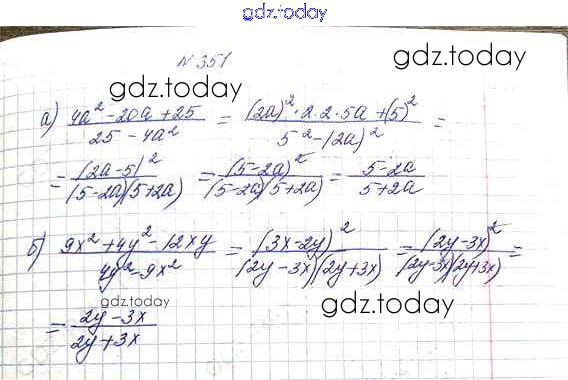 gdz.today
N 351
gdz.today
gdz.today
а) (4a² - 20a + 25)/(25 - 4a²) = ((2a)² · 2 · 2 · 5a + (5)²)/(5² - (2a)²) =
= (2a - 5)²/((5 - 2a)(5 + 2a)) = (5 - 2a)²/((5 - 2a)(5 + 2a)) = (5 - 2a)/(5 + 2a)
б) (9x² + 4y² - 12xy)/(4y² - 9x²) = (3x - 2y)²/((2y - 3x)(2y + 3x)) = (2y - 3x)²/((2y - 3x)(2y + 3x)) =
gdz.today
gdz.today
= (2y - 3x)/(2y + 3x)